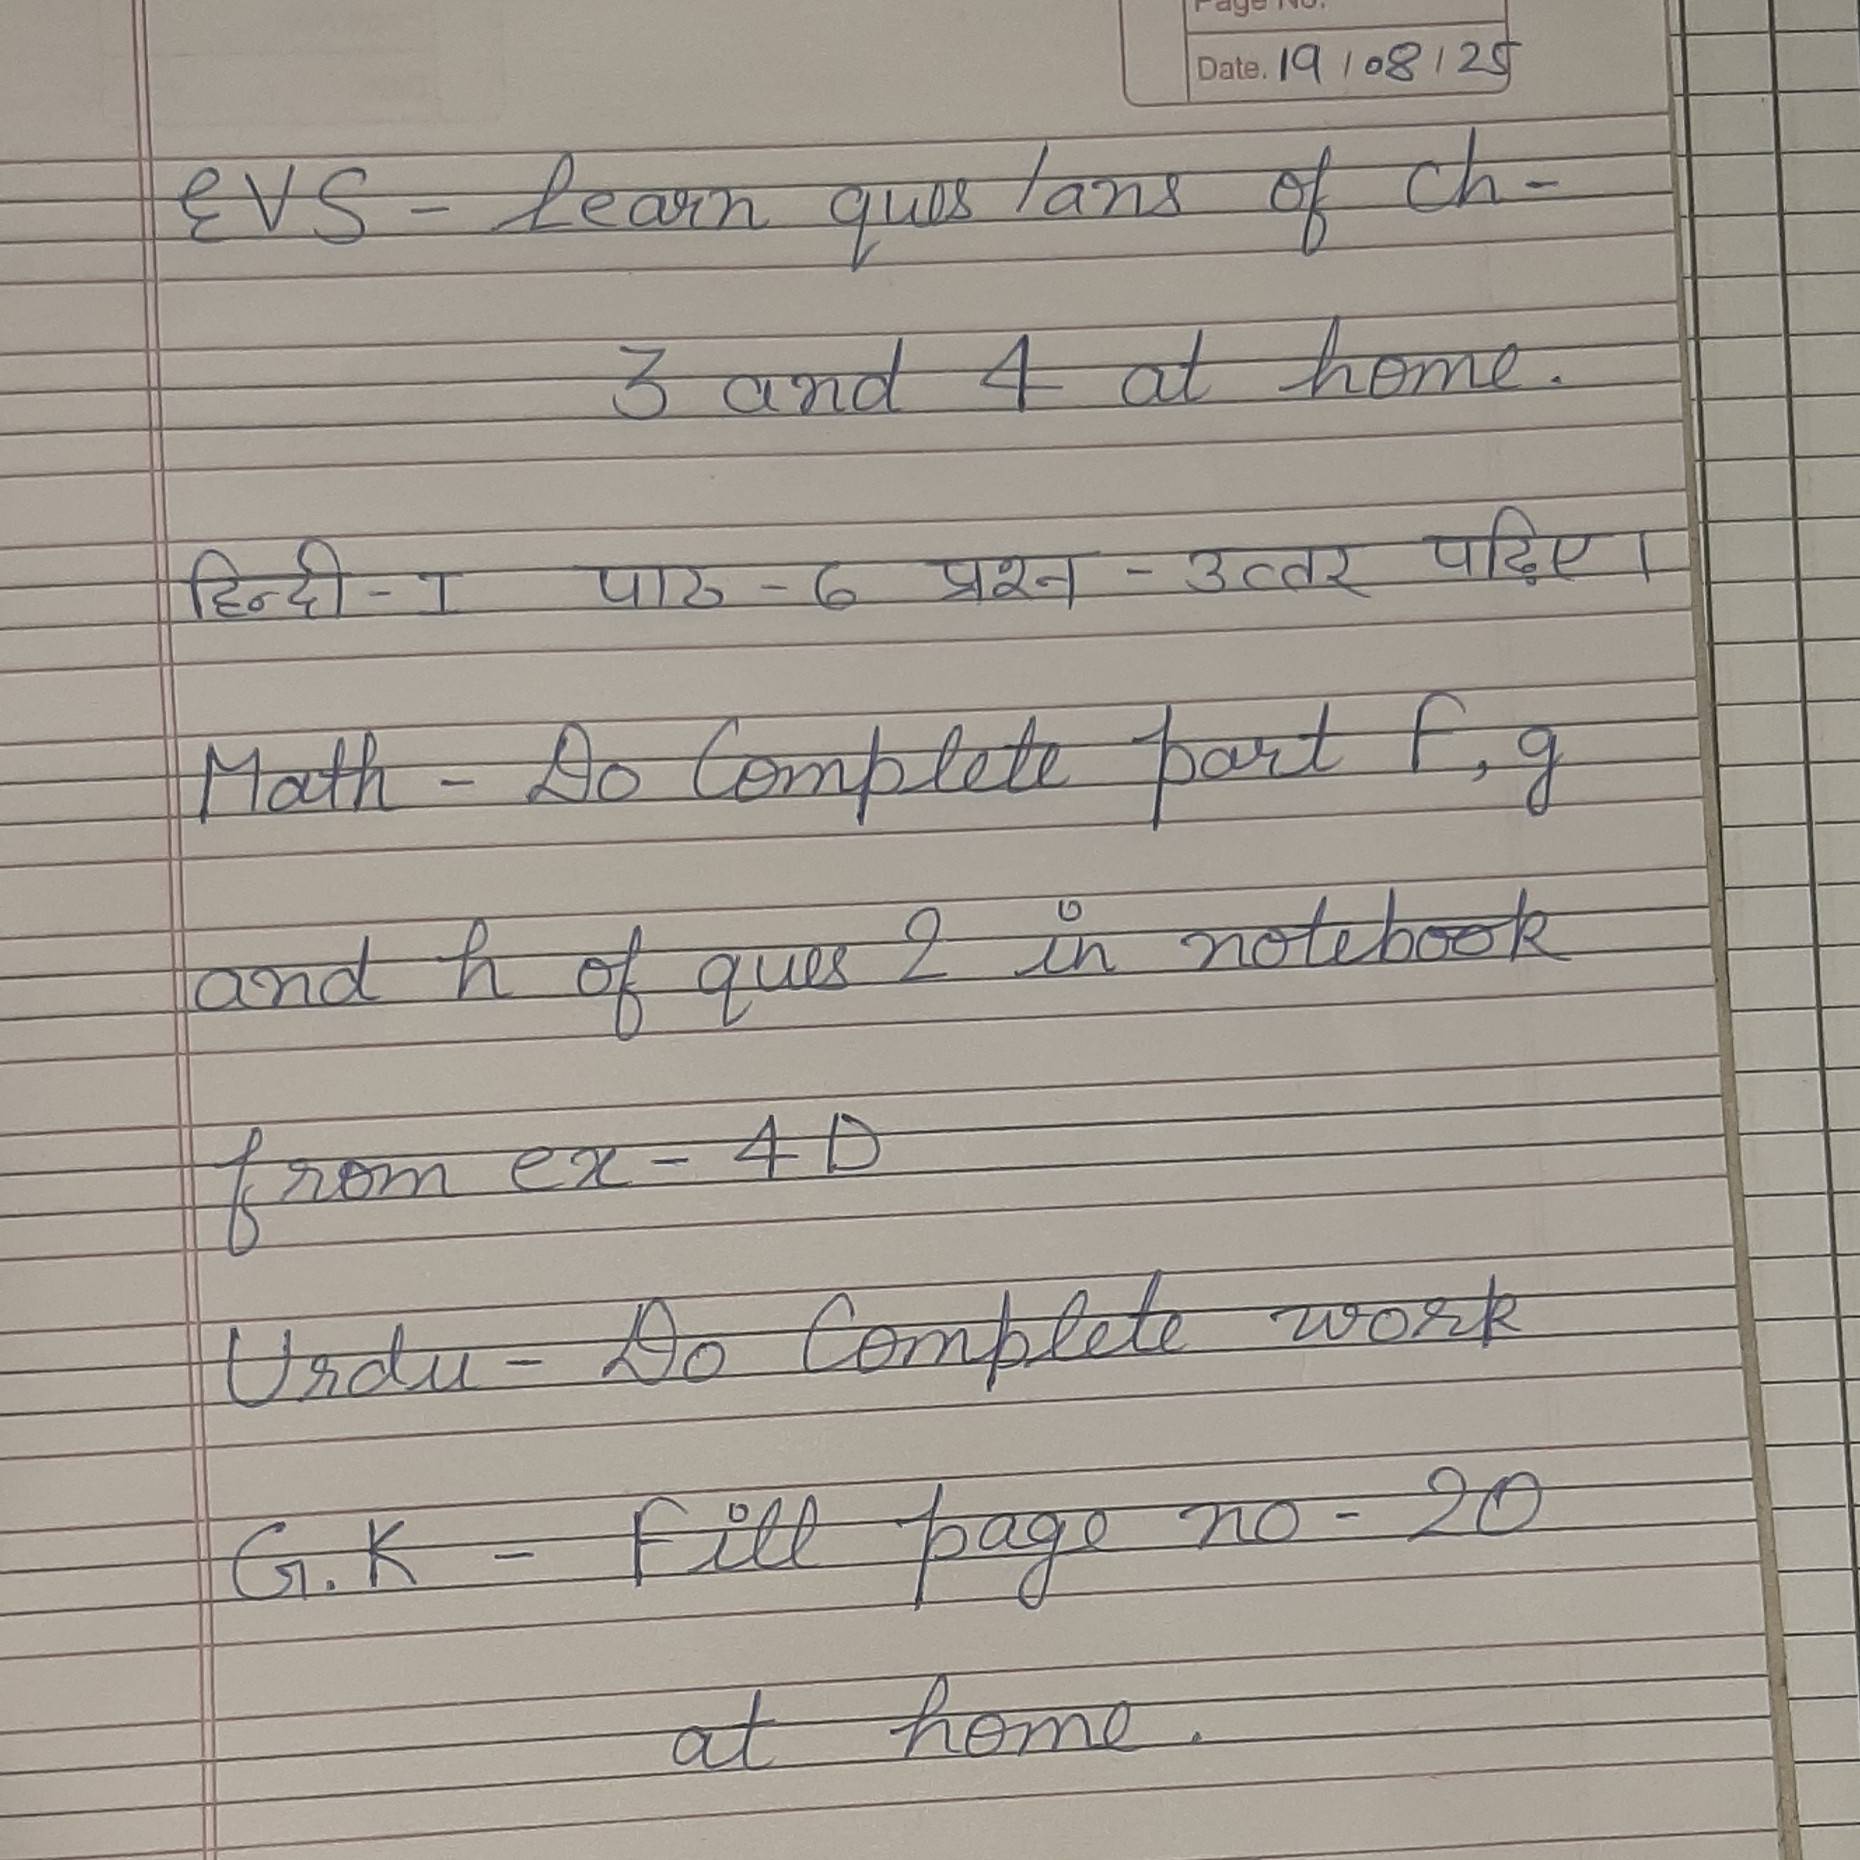 Page No.
Date. 19/08/25
EVS - Learn ques/ans of ch-
3 and 4 at home.
हिन्दी-I पाठ-6 प्रश्न-उत्तर पढ़िए।
Math - Do Complete part f, g
and h of ques 2 in notebook
from ex-4D
Urdu - Do Complete work
G.K - Fill page no-20
at home.